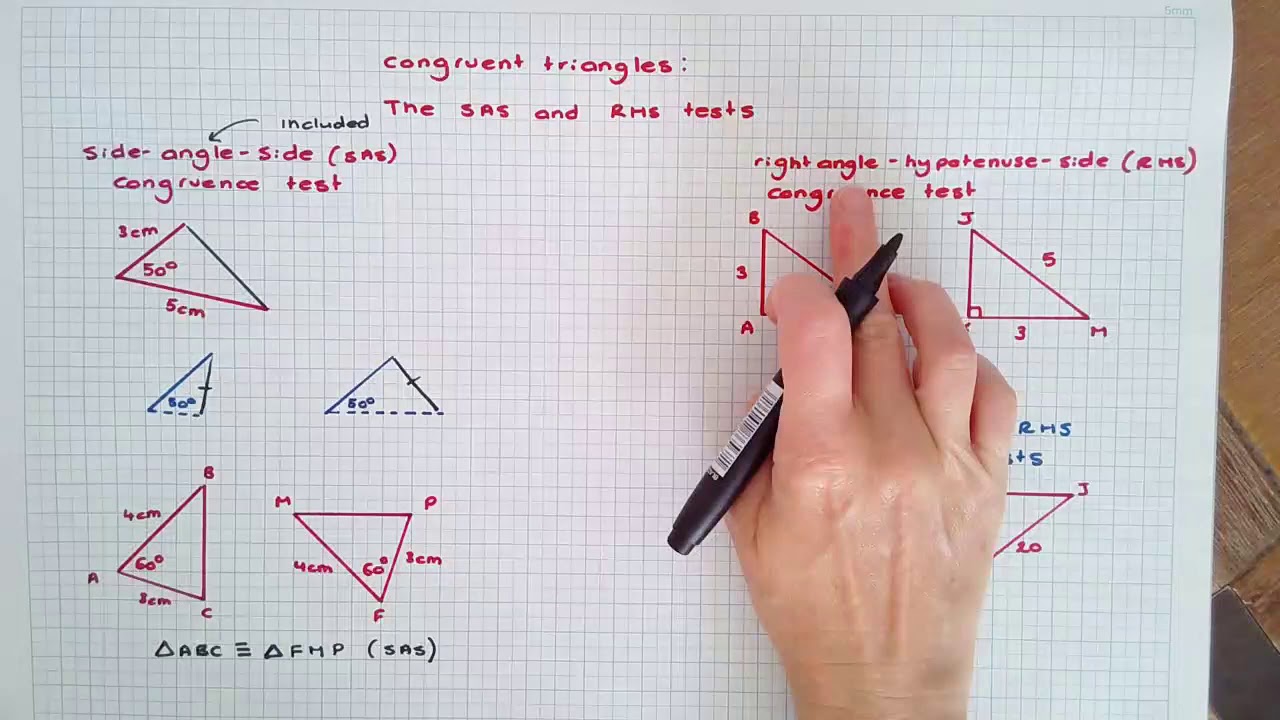 5mm
congruent triangles:
The SAS and RHS tests
included
side-angle-side (SAS)
congruence test
3cm
50°
5cm
50°
50°
B
4cm
60°
A
3cm
C
M
P
4cm
60°
3cm
F
△ABC ≡ △FMP (SAS)
right angle - hypotenuse - side (RHS)
test
B
3
A
J
5
3
M
RHS
J
20